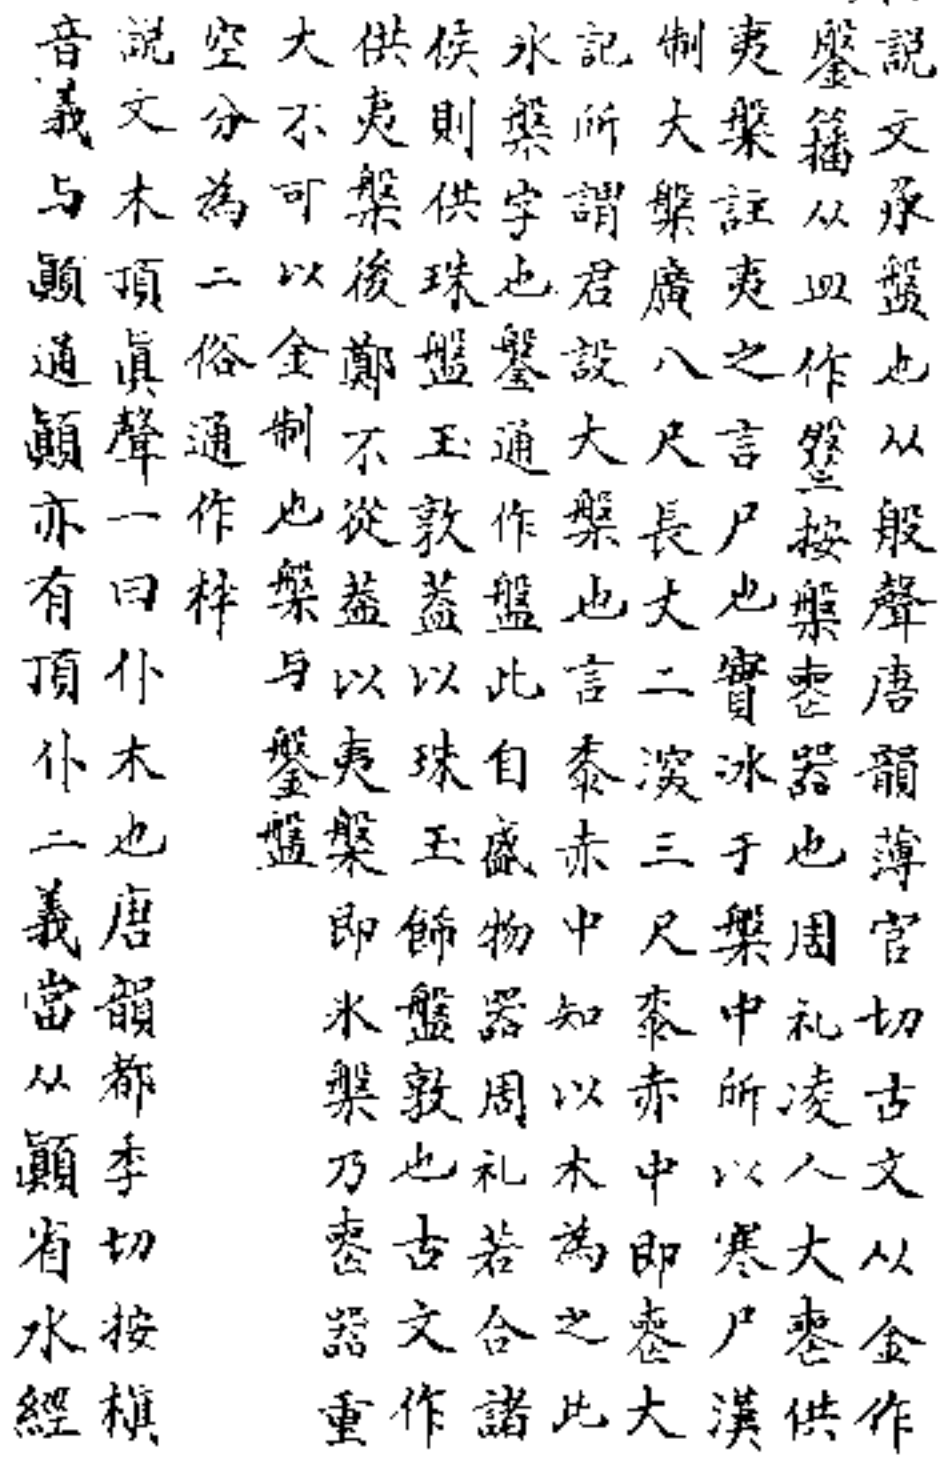 説文承盤也从般聲唐韻薄官切古文从金作
鎜籀从皿作盤按槃喪器也周礼凌人大喪供
夷槃註夷之言尸也實冰于槃中所以寒尸漢
制大槃廣八尺長丈二深三尺黍赤中即喪大
記所謂君設大槃也言黍赤中知以木為之此
氷槃字也鎜通作盤此自盛物器周礼若合諸
侯則供珠盤玉敦蓋以珠玉飾盤敦也古文作
供夷槃後鄭不從蓋以夷槃即氷槃乃喪器重
大不可以金制也槃与鎜盤
空分為二俗通作柈
説文木頂眞聲一曰仆木也唐韻都季切按槙
音義与顚通顚亦有頂仆二義當从顚省水經